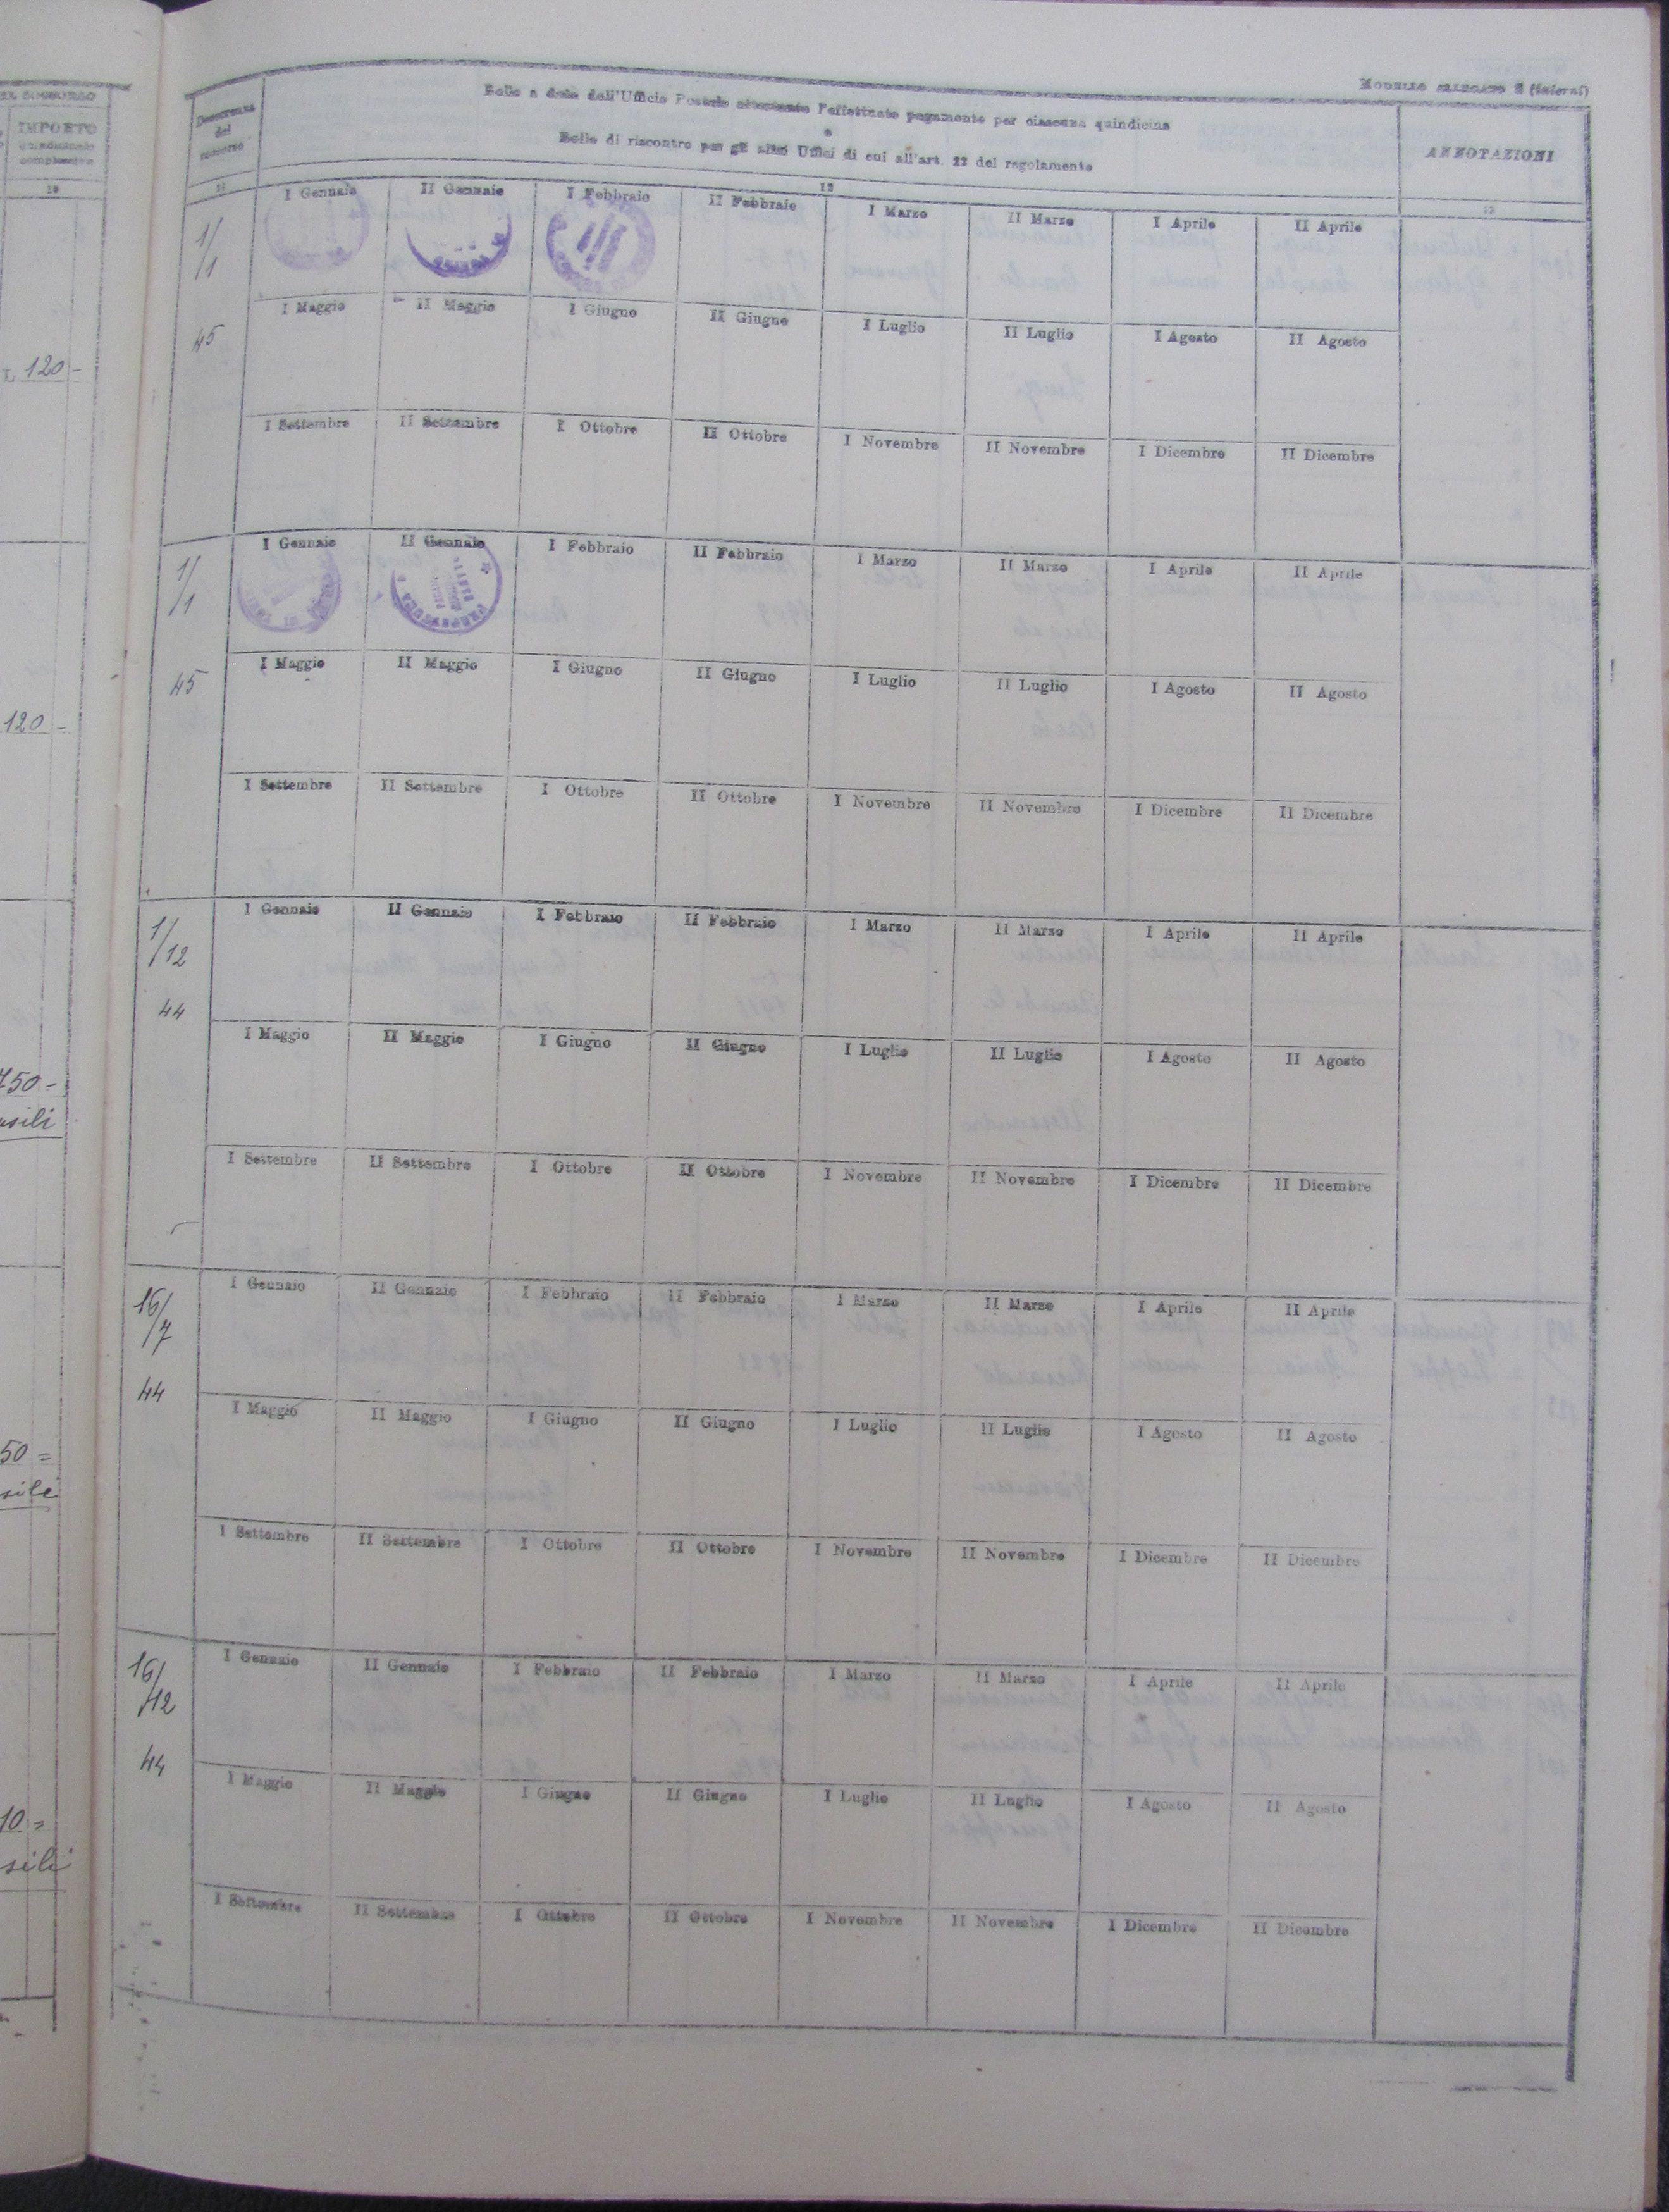 MODELLO ALLEGATO (interni)
IMPORTO
quindicinale
complessivo
10
Decorrenza
del
soccorso
Bollo a data dell'Ufficio Postale attestante l'effettuato pagamento per ciascuna quindicina
e
Bollo di riscontro per gli altri Uffici di cui all'art. 22 del regolamento
ANNOTAZIONI
11
12
13
I Gennaio II Gennaio I Febbraio II Febbraio I Marzo II Marzo I Aprile II Aprile
1/1
45
L. 120-
I Maggio II Maggio I Giugno II Giugno I Luglio II Luglio I Agosto II Agosto
I Settembre II Settembre I Ottobre II Ottobre I Novembre II Novembre I Dicembre II Dicembre
I Gennaio II Gennaio I Febbraio II Febbraio I Marzo II Marzo I Aprile II Aprile
PREFETTURA
1/1
45
120=
I Maggio II Maggio I Giugno II Giugno I Luglio II Luglio I Agosto II Agosto
I Settembre II Settembre I Ottobre II Ottobre I Novembre II Novembre I Dicembre II Dicembre
I Gennaio II Gennaio I Febbraio II Febbraio I Marzo II Marzo I Aprile II Aprile
1/12
44
I Maggio II Maggio I Giugno II Giugno I Luglio II Luglio I Agosto II Agosto
750-
nsili
I Settembre II Settembre I Ottobre II Ottobre I Novembre II Novembre I Dicembre II Dicembre
I Gennaio II Gennaio I Febbraio II Febbraio I Marzo II Marzo I Aprile II Aprile
16/7
44
I Maggio II Maggio I Giugno II Giugno I Luglio II Luglio I Agosto II Agosto
50=
sili
I Settembre II Settembre I Ottobre II Ottobre I Novembre II Novembre I Dicembre II Dicembre
I Gennaio II Gennaio I Febbraio II Febbraio I Marzo II Marzo I Aprile II Aprile
16/12
44
I Maggio II Maggio I Giugno II Giugno I Luglio II Luglio I Agosto II Agosto
10=
sili
I Settembre II Settembre I Ottobre II Ottobre I Novembre II Novembre I Dicembre II Dicembre